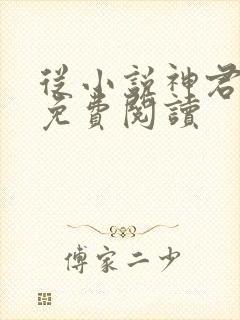 從小說神君
免費閱讀
傅家二少